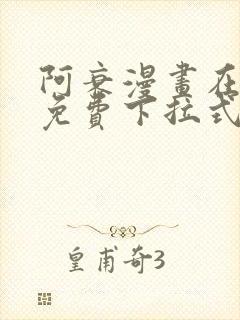 阿衰漫畫在
免費下拉式
皇甫奇3